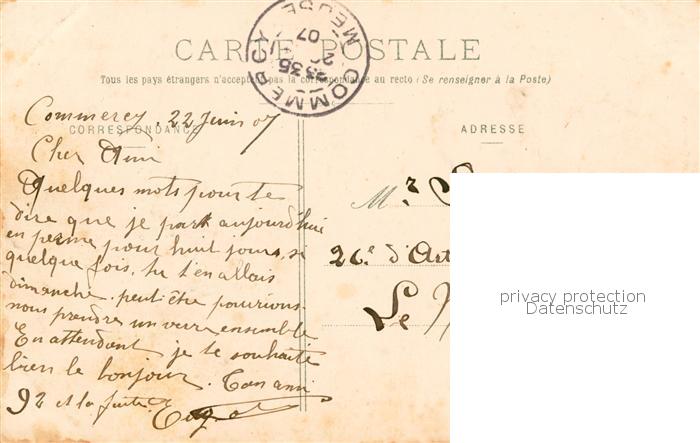 CARTE POSTALE
Tous les pays étrangers n'acceptent pas la correspondance au recto (Se renseigner à la Poste)
COMMERCY
MEUSE
07
CORRESPONDANCE
ADRESSE
Commercy, 22 Juin 07
Cher Ami
Quelques mots pour te
dire que je part aujourd'hui
en perme pour huit jours, si
quelque fois, tu t'en allais
dimanche peut être pourions
nous prendre un verre ensemble
En attendant je te souhaite
bien le bonjour. Ton ami
92 et la fuite
Mr
26e d'Art
Le
privacy protection
Datenschutz